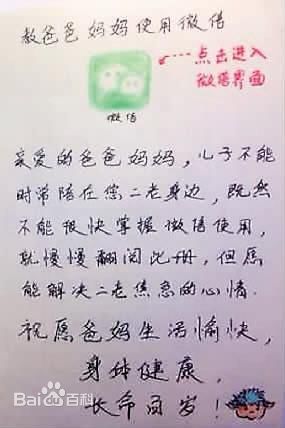 教爸爸妈妈使用微信
点击进入
微信界面
微信
亲爱的爸爸妈妈，儿子不能
时常陪在您二老身边，既然
不能很快掌握微信使用，
就慢慢翻阅此册，但愿
能解决二老焦急的心情.
祝愿爸妈生活愉快，
身体健康，
长命百岁！
Baidu百科